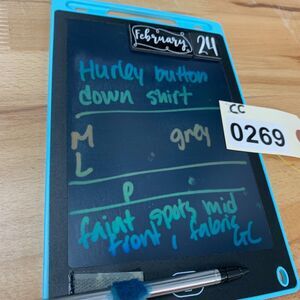 February 24
Hurley button
down shirt
CC
0269
M grey
L
P .
faint spots mid
front, fabric GC